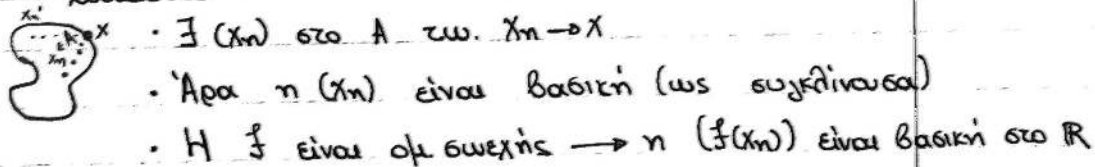 xₙ' A x
xₙ
· ∃ (xₙ) στο Α τω. xₙ → x
· Άρα η (xₙ) είναι βασική (ως συγκλίνουσα)
· Η f είναι ομ συνεχής → η (f(xₙ)) είναι βασική στο ℝ